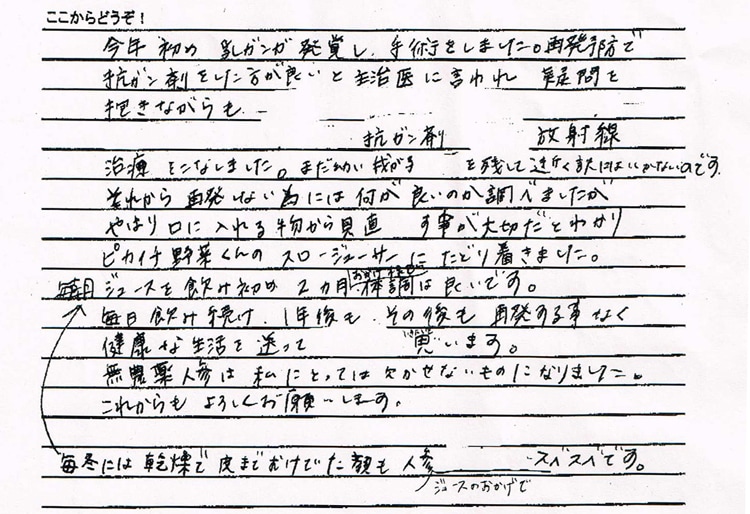 ここからどうぞ!
今年初め 乳ガンが発覚し、手術をしました。再発予防で
抗ガン剤をした方が良いと主治医に言われ 疑問を
抱きながらも
抗ガン剤 放射線
治療をこなしました。まだ幼い我が子 を残して逝く訳にはいかないのです。
それから再発しない為には何が良いのか調べましたが
やはり口に入れる物から見直 す事が大切だとわかり
ピカイチ野菜くんのスロージューサーにたどり着きました。
毎朝 ジュースを飲み初め 2ヵ月 おかげさまで 体調は良いです。
毎日飲み続け、1年後も、その後も 再発する事なく
健康な生活を送って 思います。
無農薬人参は私にとっては欠かせないものになりました。
これからもよろしくお願いします。
毎冬には乾燥で皮までむけてた顔も人参 スベスベです。
ジュースのおかげで